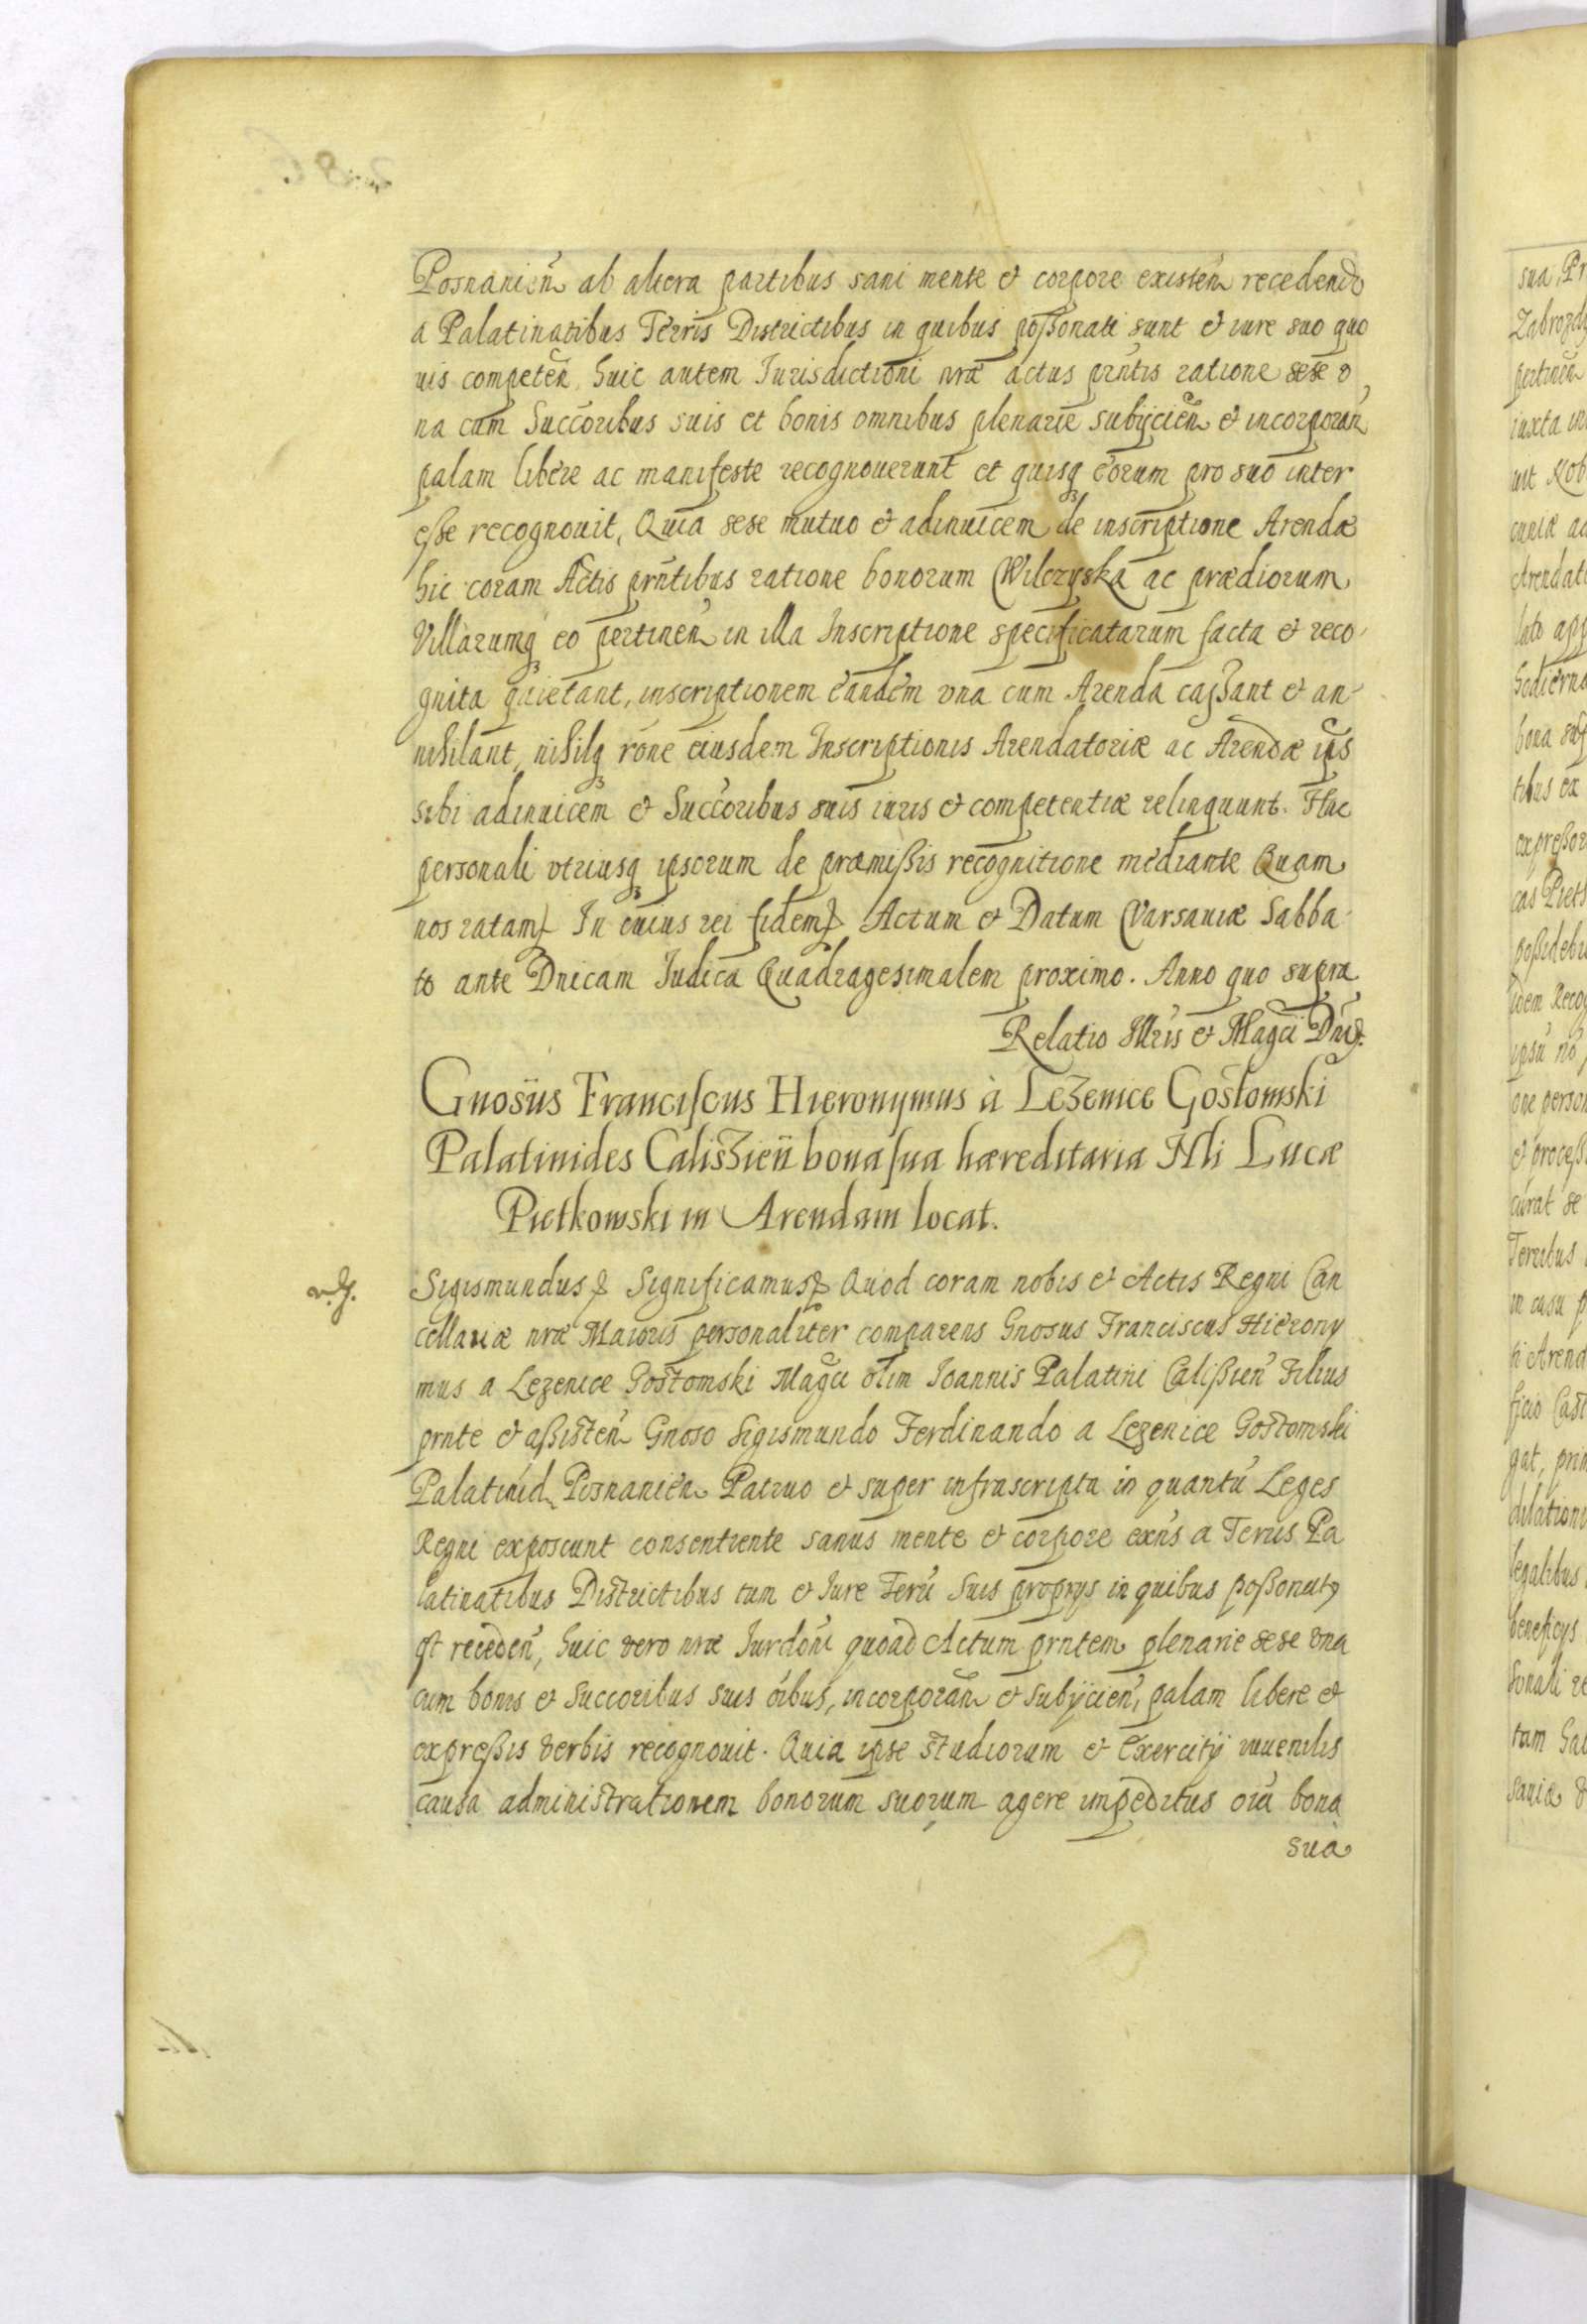 Posnanien̄ ab altera partibus sani mente & corpore existen̄ recedend
a Palatinatibus Terris Districtibus in quibus poßonati sunt & iure suo quo
uis competen̄ huic autem Iurisdictioni nrǣ actus prn̄tis ratione sese v
na cum Succoribus suis et bonis omnibus plenarie subijcien̄ & incorporan̄
palam libere ac manifeste recognouerunt et quisqꝫ eorum pro suo inter
eße recognouit, Quia sese mutuo & adinuicem de inscriptione Arendæ
hic coram Actis prn̄tibus ratione bonorum Wilczyska ac prædiorum
Villarumqꝫ eo pertinen̄ in illa Inscriptione specificatarum facta & reco
gnita quietant, inscriptionem eandem vna cum Arenda caßant & an-
nihilant, nihilqꝫ rōne eiusdem Inscriptionis Arendatoriæ ac Arendæ ip̄s
sibi adinuicem & Succoribus suis iuris & competentiæ relinquunt. Hac
personali vtriusqꝫ ipsorum de præmißis recognitione mediante Quam
nos ratam In cuius rei fidem Actum & Datum Varsauiæ Sabba-
to ante Dnicam Iudica Quadragesimalem proximo. Anno quo supra
Relatio Illris & Magci Dni
Gnosus Franciscus Hieronymus à Lezenice Gostomski
Palatinides Caliszien̄ bona sua hæreditaria Nli Lucæ
Pietkowski in Arendam locat.
Sigismundus Significamus Quod coram nobis & Actis Regni Can
cellariæ nræ Maioris personaliter comparens Gnosus Franciscus Hierony
mus a Lezenice Gostomski Magci olim Ioannis Palatini Calißien̄ Filius
prnte & aßisten̄ Gnoso Sigismundo Ferdinando a Lezenice Gostomski
Palatinid Posnanien̄ Patruo & super infrascripta in quantū Leges
Regni exposcunt consentiente sanus mente & corpore exn̄s a Terris Pa
latinatibus Districtibus tum & Iure Terrū suis proprys in quibus poßonatꝰ
est receden̄, huic vero nræ Iurdōni quoad Actum prntem plenarie sese vna
cum bonis & Succoribus suis oībus, incorporan̄ & subijcien̄, palam libere &
expreßis verbis recognouit. Quia ipse studiorum & Exercitij iuuenilis
causa administrationem bonorum suorum agere impeditus oīa bona
sua